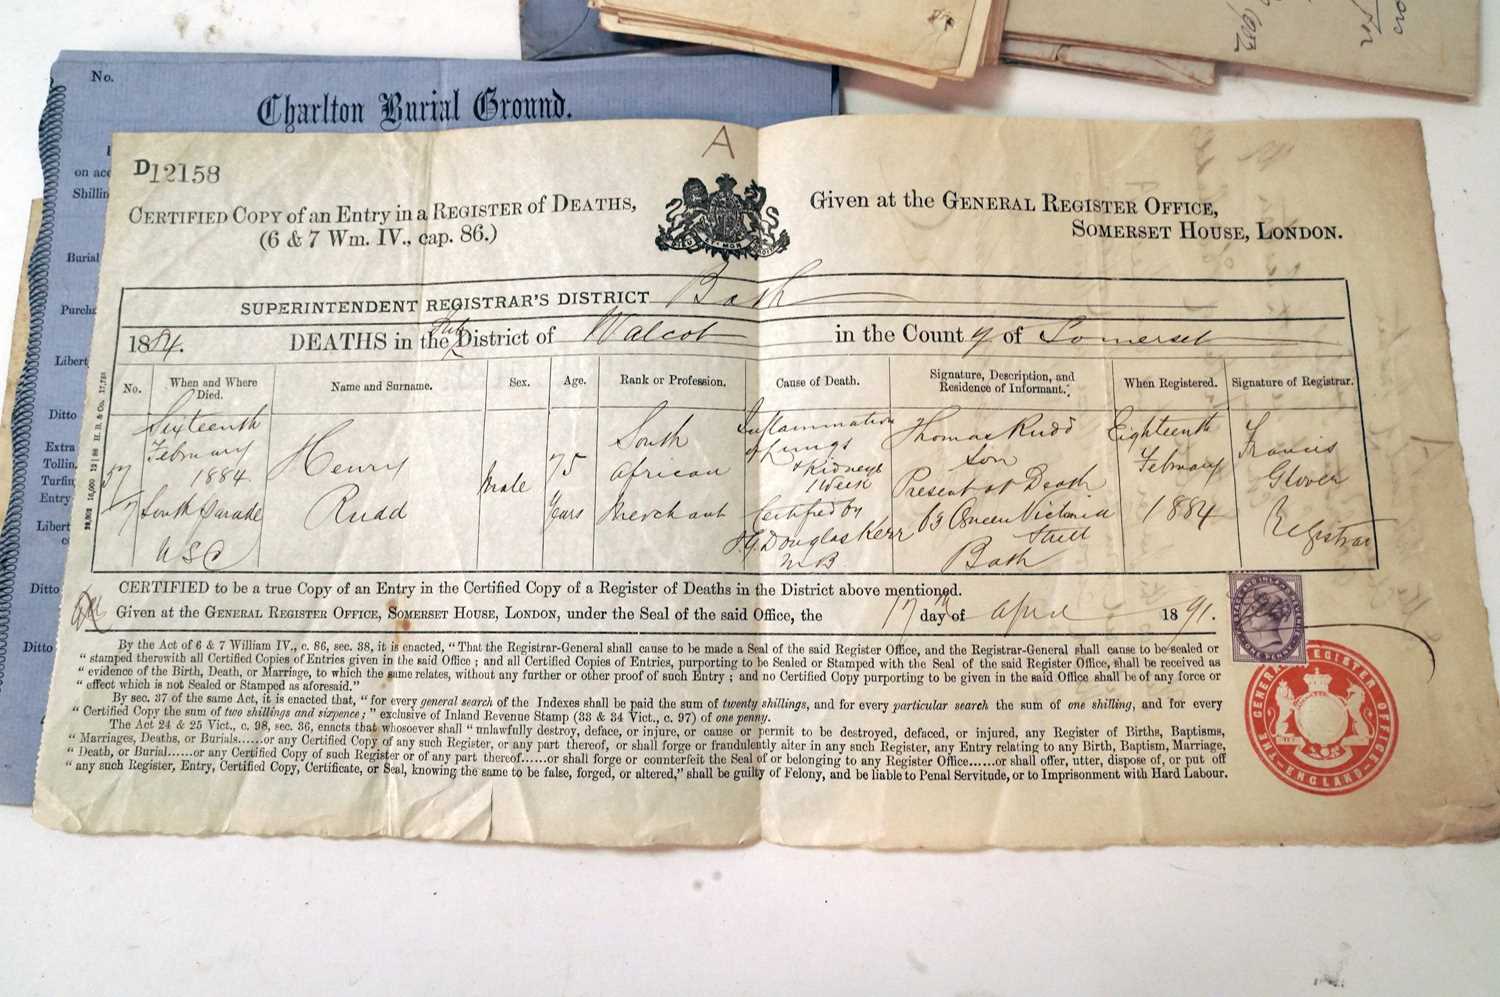 No.
Charlton Burial Ground.
on acc
Shillin
Burial
Purcha
Libert
Ditto
Extra
Tollin
Turfin
Entry
Libert
Ditto
Ditto
1902
A
D12158
CERTIFIED COPY of an Entry in a REGISTER of DEATHS,
(6 & 7 Wm. IV., cap. 86.)
Given at the GENERAL REGISTER OFFICE,
SOMERSET HOUSE, LONDON.
SUPERINTENDENT REGISTRAR'S DISTRICT Bath
1884. DEATHS in the Sub District of Walcot in the County of Somerset
No. When and Where Died. Name and Surname. Sex. Age. Rank or Profession. Cause of Death. Signature, Description, and Residence of Informant. When Registered. Signature of Registrar.
57
Sixteenth
February
1884
7
South Parade
USD
Henry
Rudd
Male
75
Years
South
African
Merchant
Inflammation
of Lungs
& Kidneys
1 Week
Certified by
Douglas Kerr
MB
Thomas Rudd
Son
Present at Death
63 Queen Victoria
Street
Bath
Eighteenth
February
1884
Francis
Glover
Registrar
CERTIFIED to be a true Copy of an Entry in the Certified Copy of a Register of Deaths in the District above mentioned.
Given at the GENERAL REGISTER OFFICE, SOMERSET HOUSE, LONDON, under the Seal of the said Office, the 17th day of April 1891.
By the Act of 6 & 7 William IV., c. 86, sec. 38, it is enacted, "That the Registrar-General shall cause to be made a Seal of the said Register Office, and the Registrar-General shall cause to be sealed or
"stamped therewith all Certified Copies of Entries given in the said Office; and all Certified Copies of Entries, purporting to be Sealed or Stamped with the Seal of the said Register Office, shall be received as
"evidence of the Birth, Death, or Marriage, to which the same relates, without any further or other proof of such Entry; and no Certified Copy purporting to be given in the said Office shall be of any force or
"effect which is not Sealed or Stamped as aforesaid."
By sec. 37 of the same Act, it is enacted that, "for every general search of the Indexes shall be paid the sum of twenty shillings, and for every particular search the sum of one shilling, and for every
"Certified Copy the sum of two shillings and sixpence;" exclusive of Inland Revenue Stamp (33 & 34 Vict., c. 97) of one penny.
The Act 24 & 25 Vict., c. 98, sec. 36, enacts that whosoever shall "unlawfully destroy, deface, or injure, or cause or permit to be destroyed, defaced, or injured, any Register of Births, Baptisms,
"Marriages, Deaths, or Burials......or any Certified Copy of any such Register, or any part thereof, or shall forge or fraudulently alter in any such Register, any Entry relating to any Birth, Baptism, Marriage,
"Death, or Burial......or any Certified Copy of such Register or of any part thereof......or shall forge or counterfeit the Seal of or belonging to any Register Office......or shall offer, utter, dispose of, or put off
"any such Register, Entry, Certified Copy, Certificate, or Seal, knowing the same to be false, forged, or altered," shall be guilty of Felony, and be liable to Penal Servitude, or to Imprisonment with Hard Labour.
THE GENERAL REGISTER OFFICE
ENGLAND